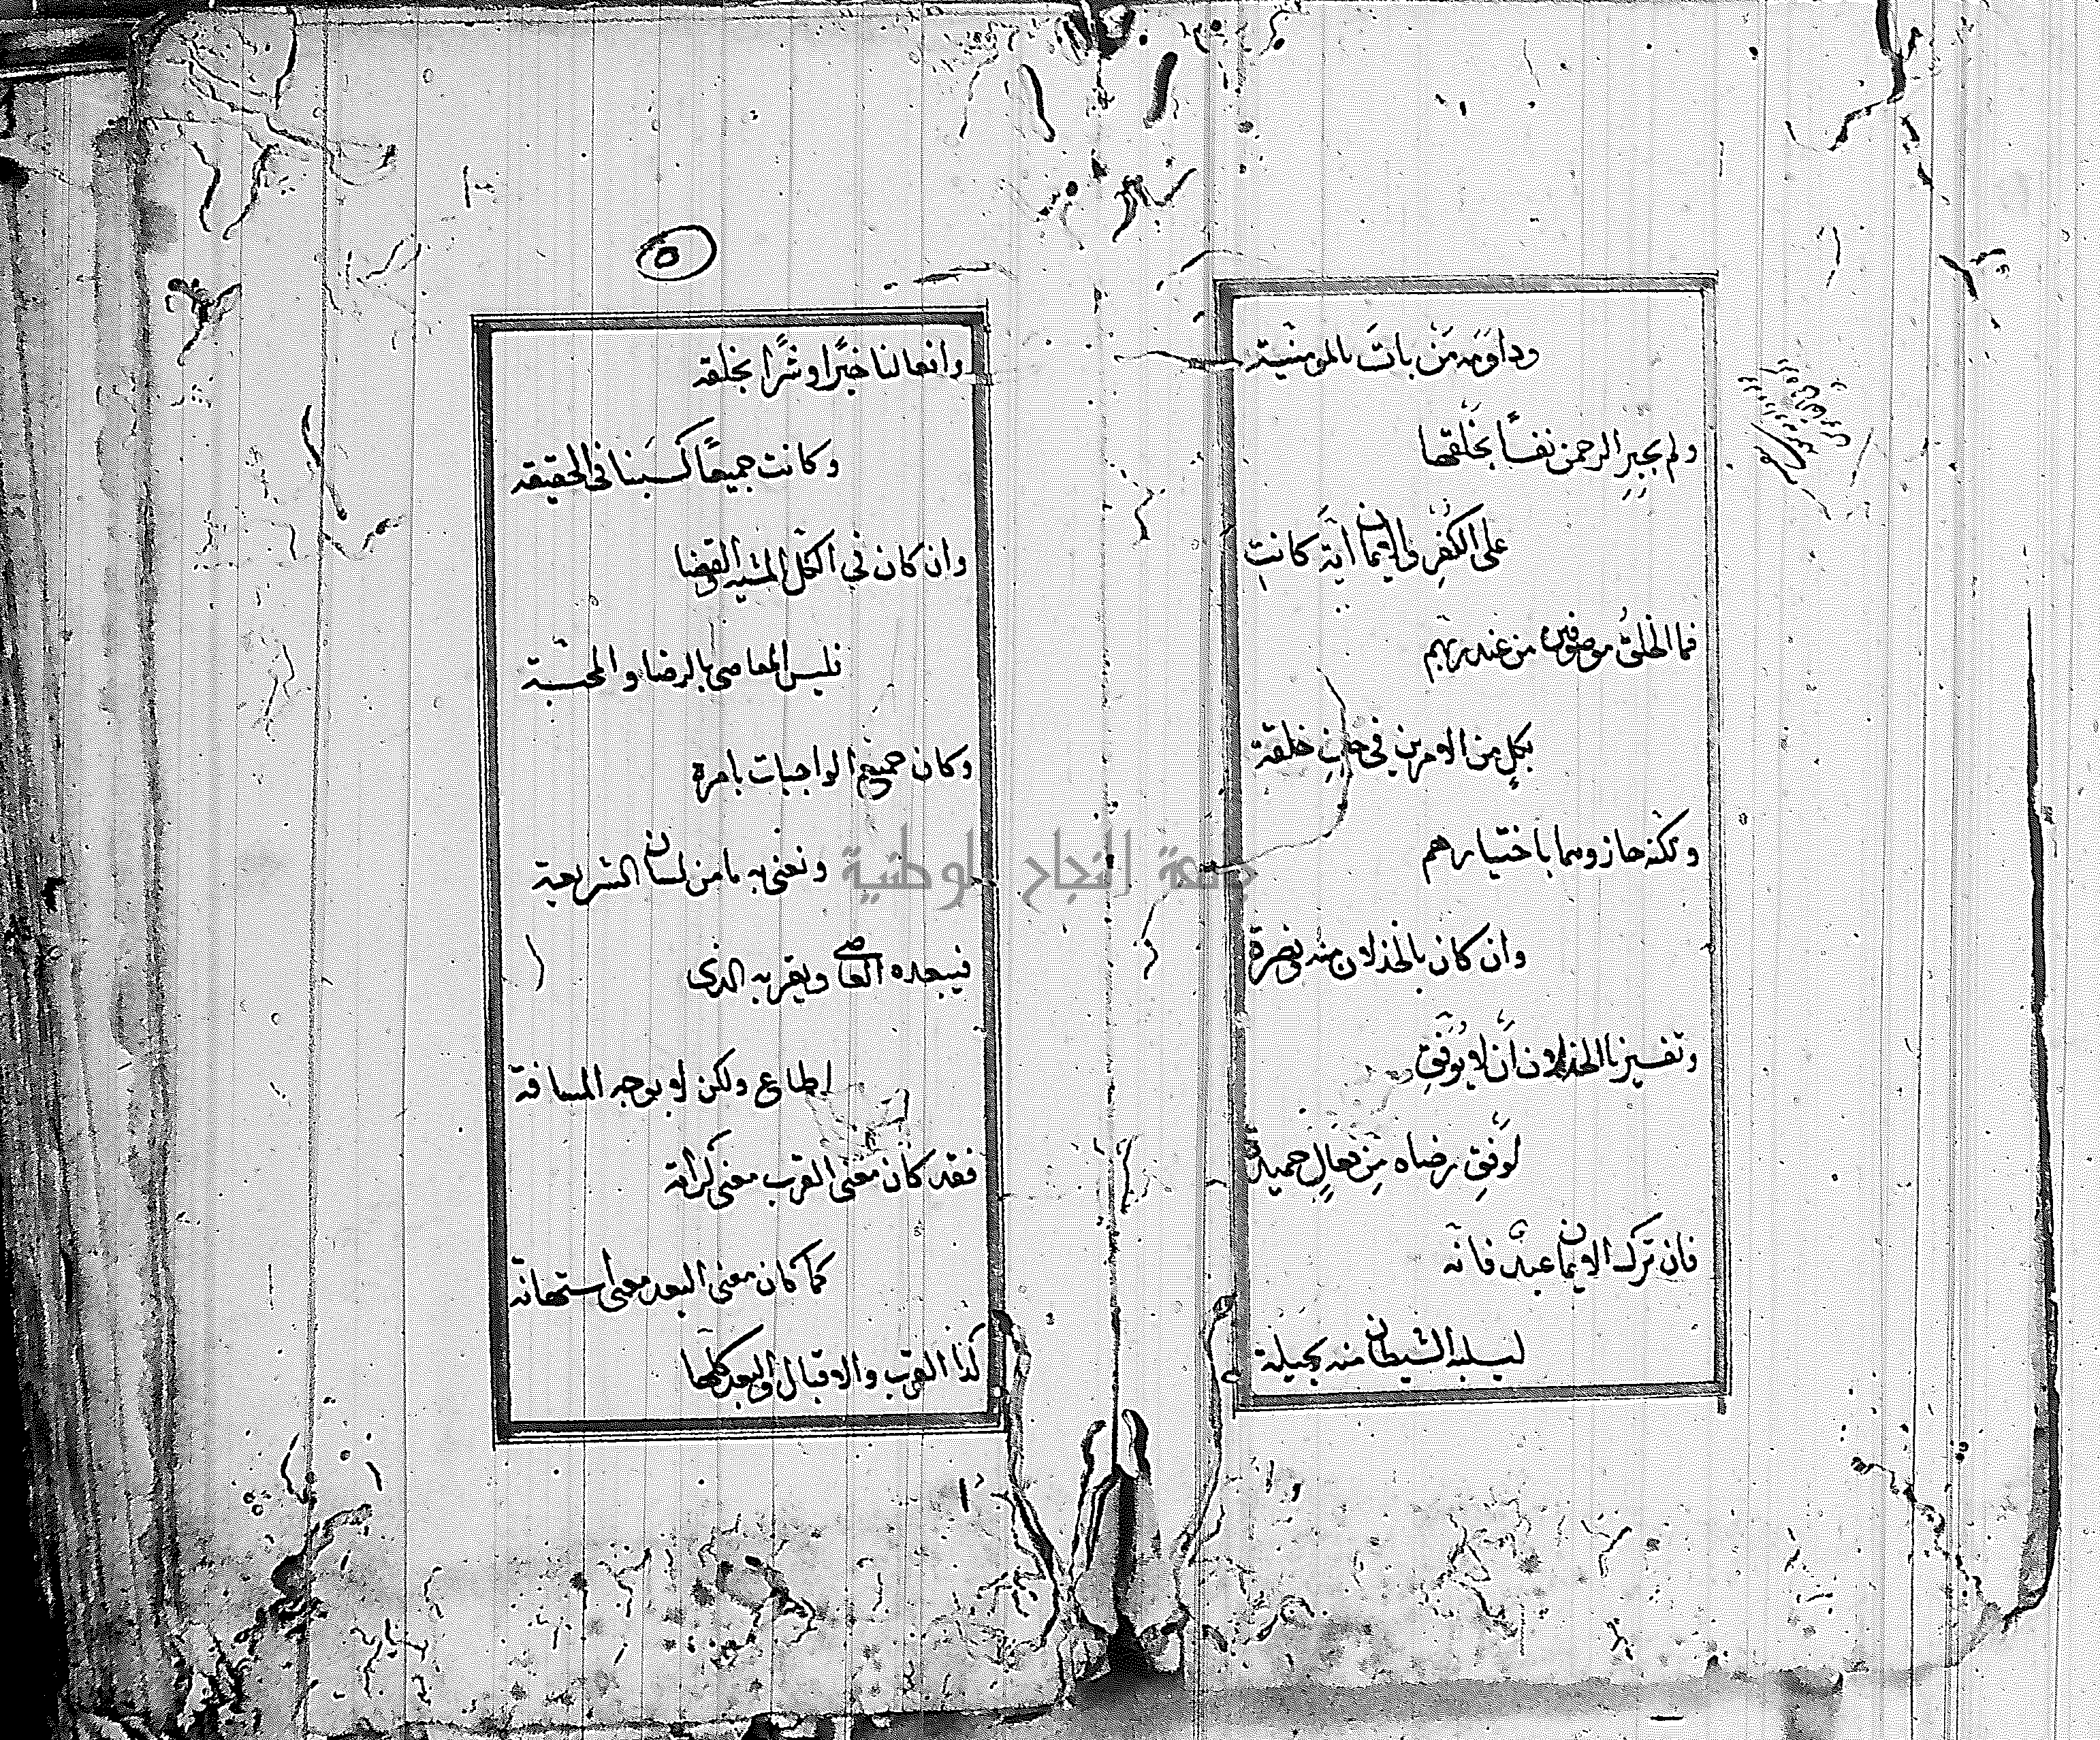 وداومه من بات بالمومنية
ولم يجبر الرحمن نفسًا بخلقها
على الكفر والايمان اية كانت
فما الخلق موصوفين من عند ربهم
بكل من الامرين في حين خلقة
ولكنه حازوهما باختيارهم
وان كان بالخذلان منه ونصرة
وتفسيرنا الخذلان أن لا يُوَفِّقِ
لوفق رضاه مِن فعالٍ حميدة
فان ترك الايمان عبدٌ فانه
ليسلبه الشيطان منه بحيلة
٥
وافعالنا خيرًا وشرًا بخلقه
وكانت جميعًا كسبنا في الحقيقه
وان كان في الكل المشيه والقضا
فليس المعاصي بالرضا والمحبة
وكان جميع الواجبات بامره
ونعني به ما من لسان الشريعة
فيبعده العاصي ويقربه الذى
اطاع ولكن لا بوجه المسافة
فقد كان معنى القرب معنى كرامة
كما كان معنى البعد معنى استهانة
كذا القرب والاقبال والبعد كلها
جامعة النجاح الوطنية